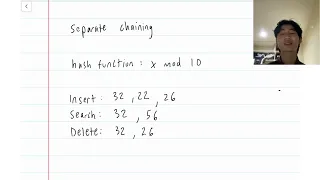 Separate chaining
hash function : x mod 10
Insert: 32 , 22 , 26
Search: 32 , 56
Delete: 32 , 26